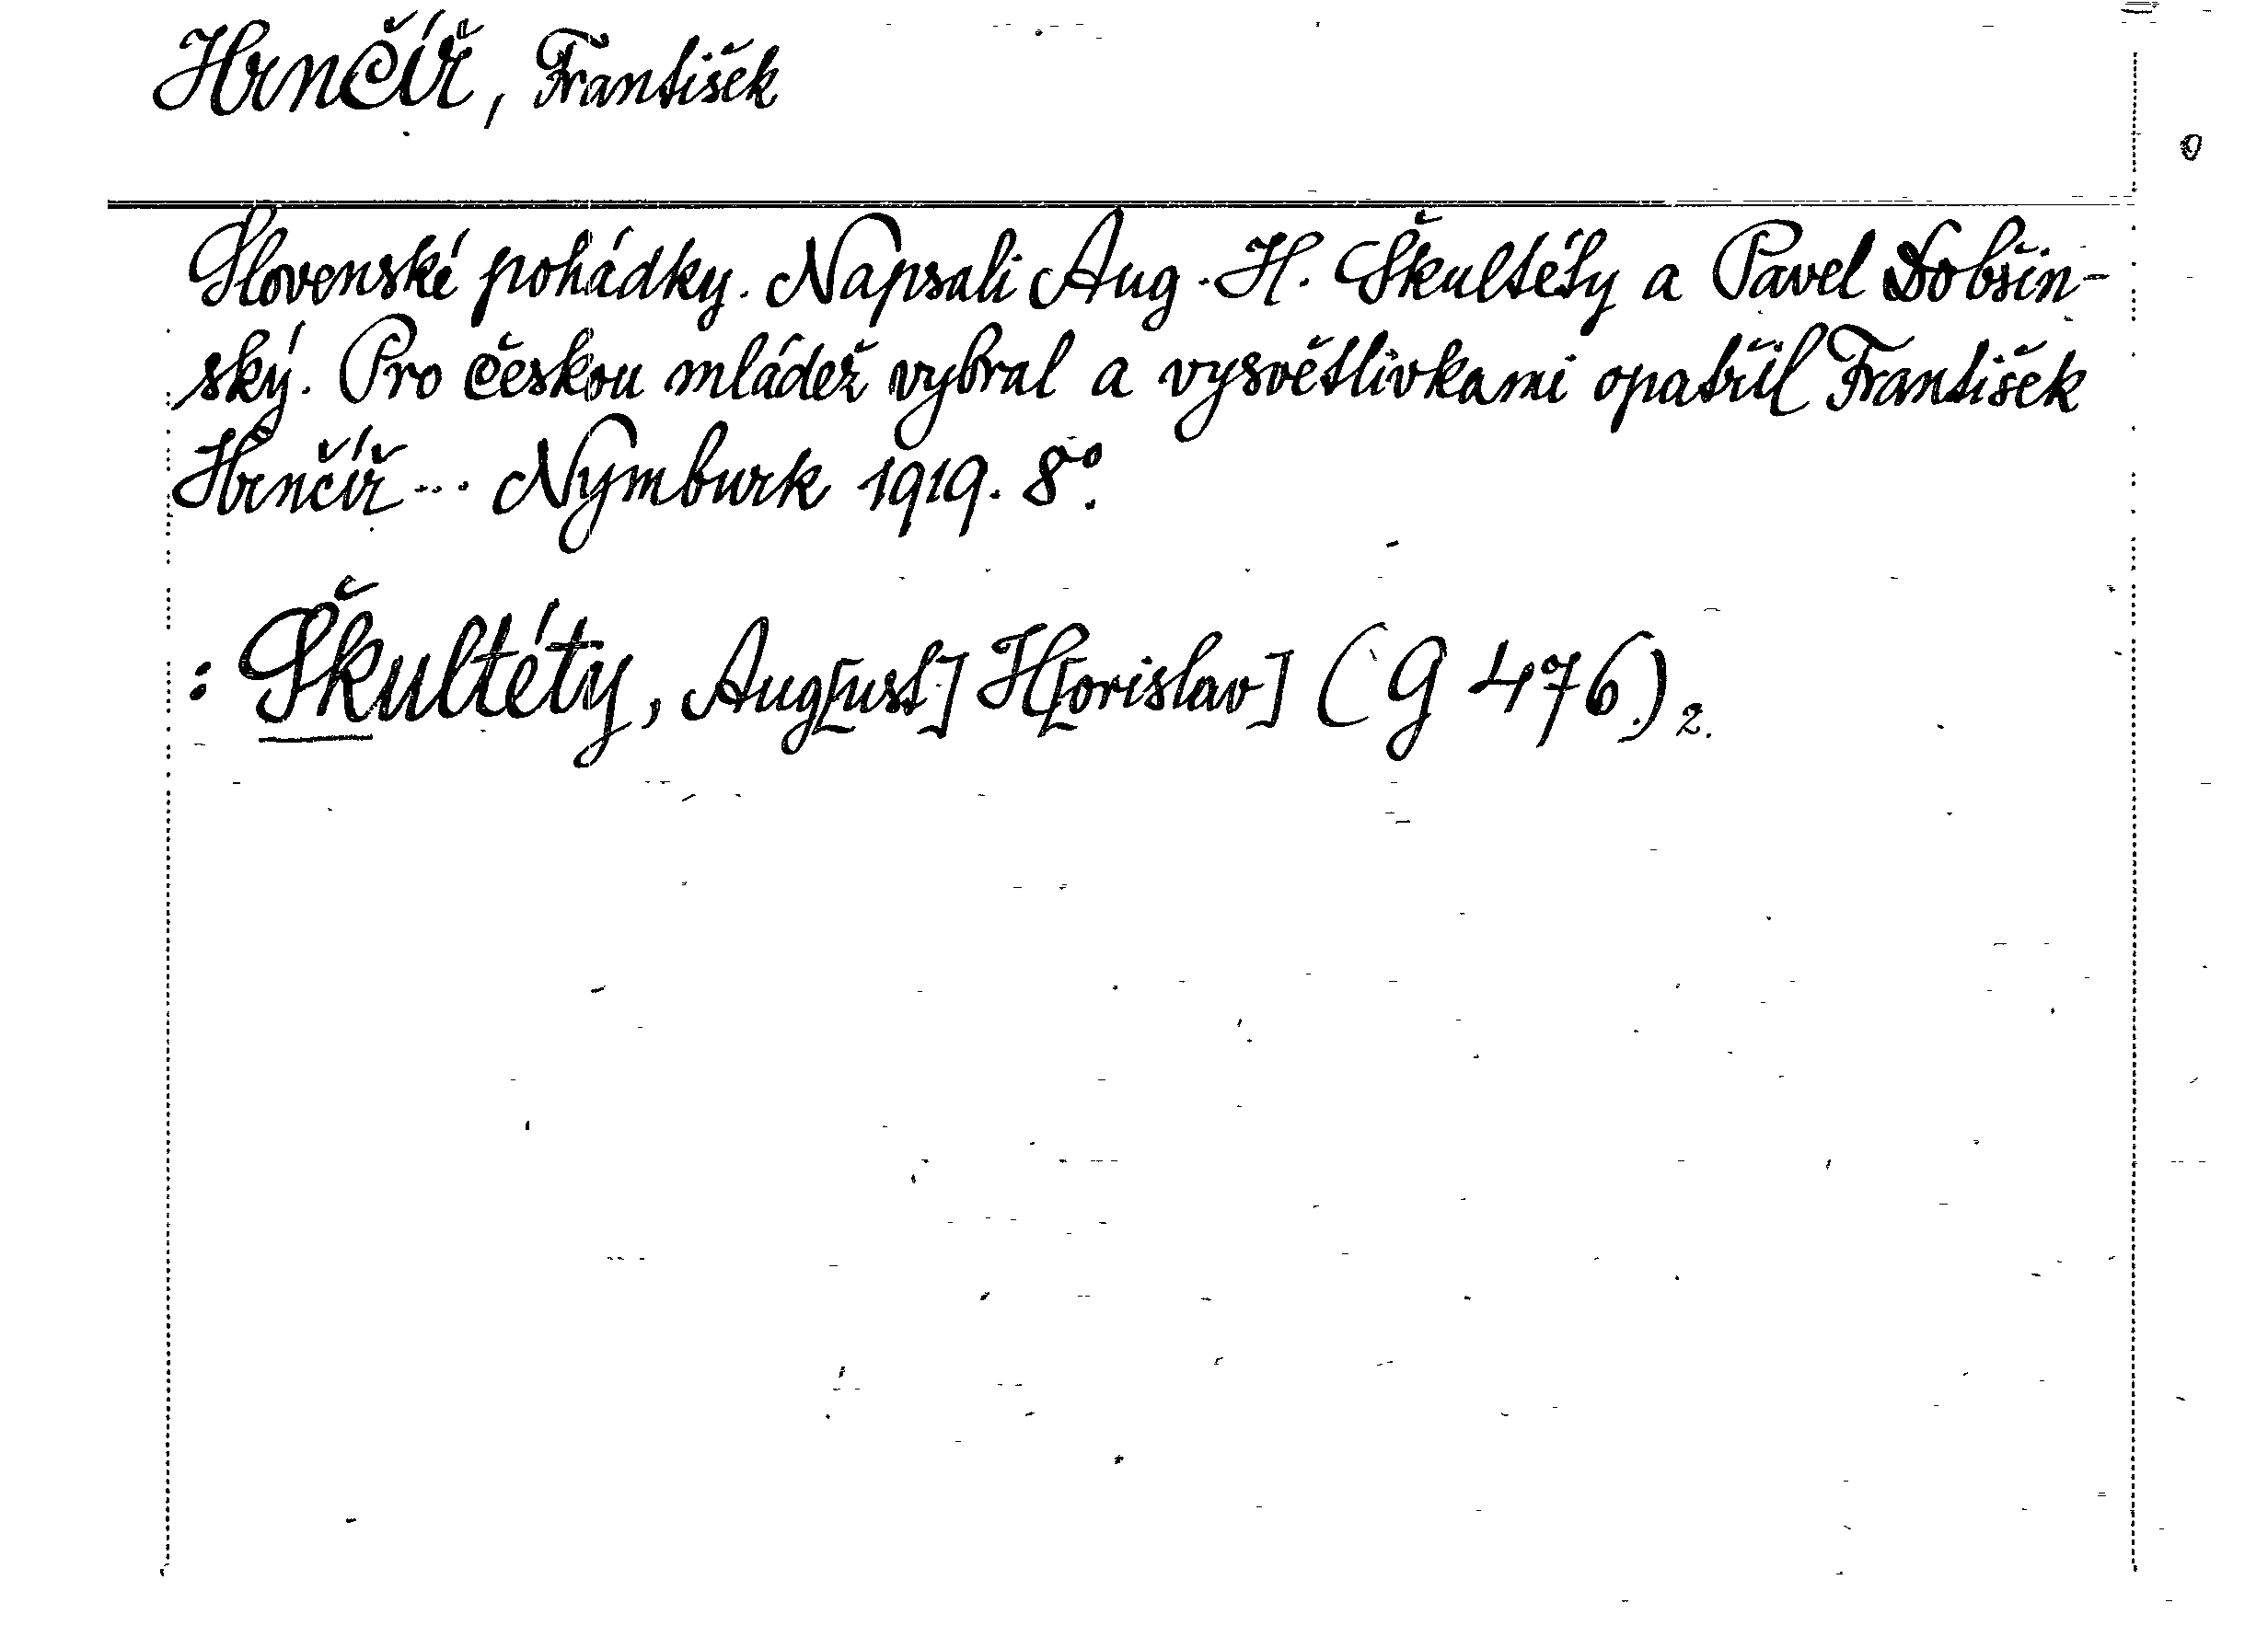 Hrnčíř, František
Slovenské pohádky. Napsali Aug. H. Škultéty a Pavel Dobšin-
ský. Pro českou mládež vybral a vysvětlivkami opatřil František
Hrnčíř... Nymburk 1919. 8°.
: Škultéty, Aug[ust] H[orislav] (G 476.) 2.